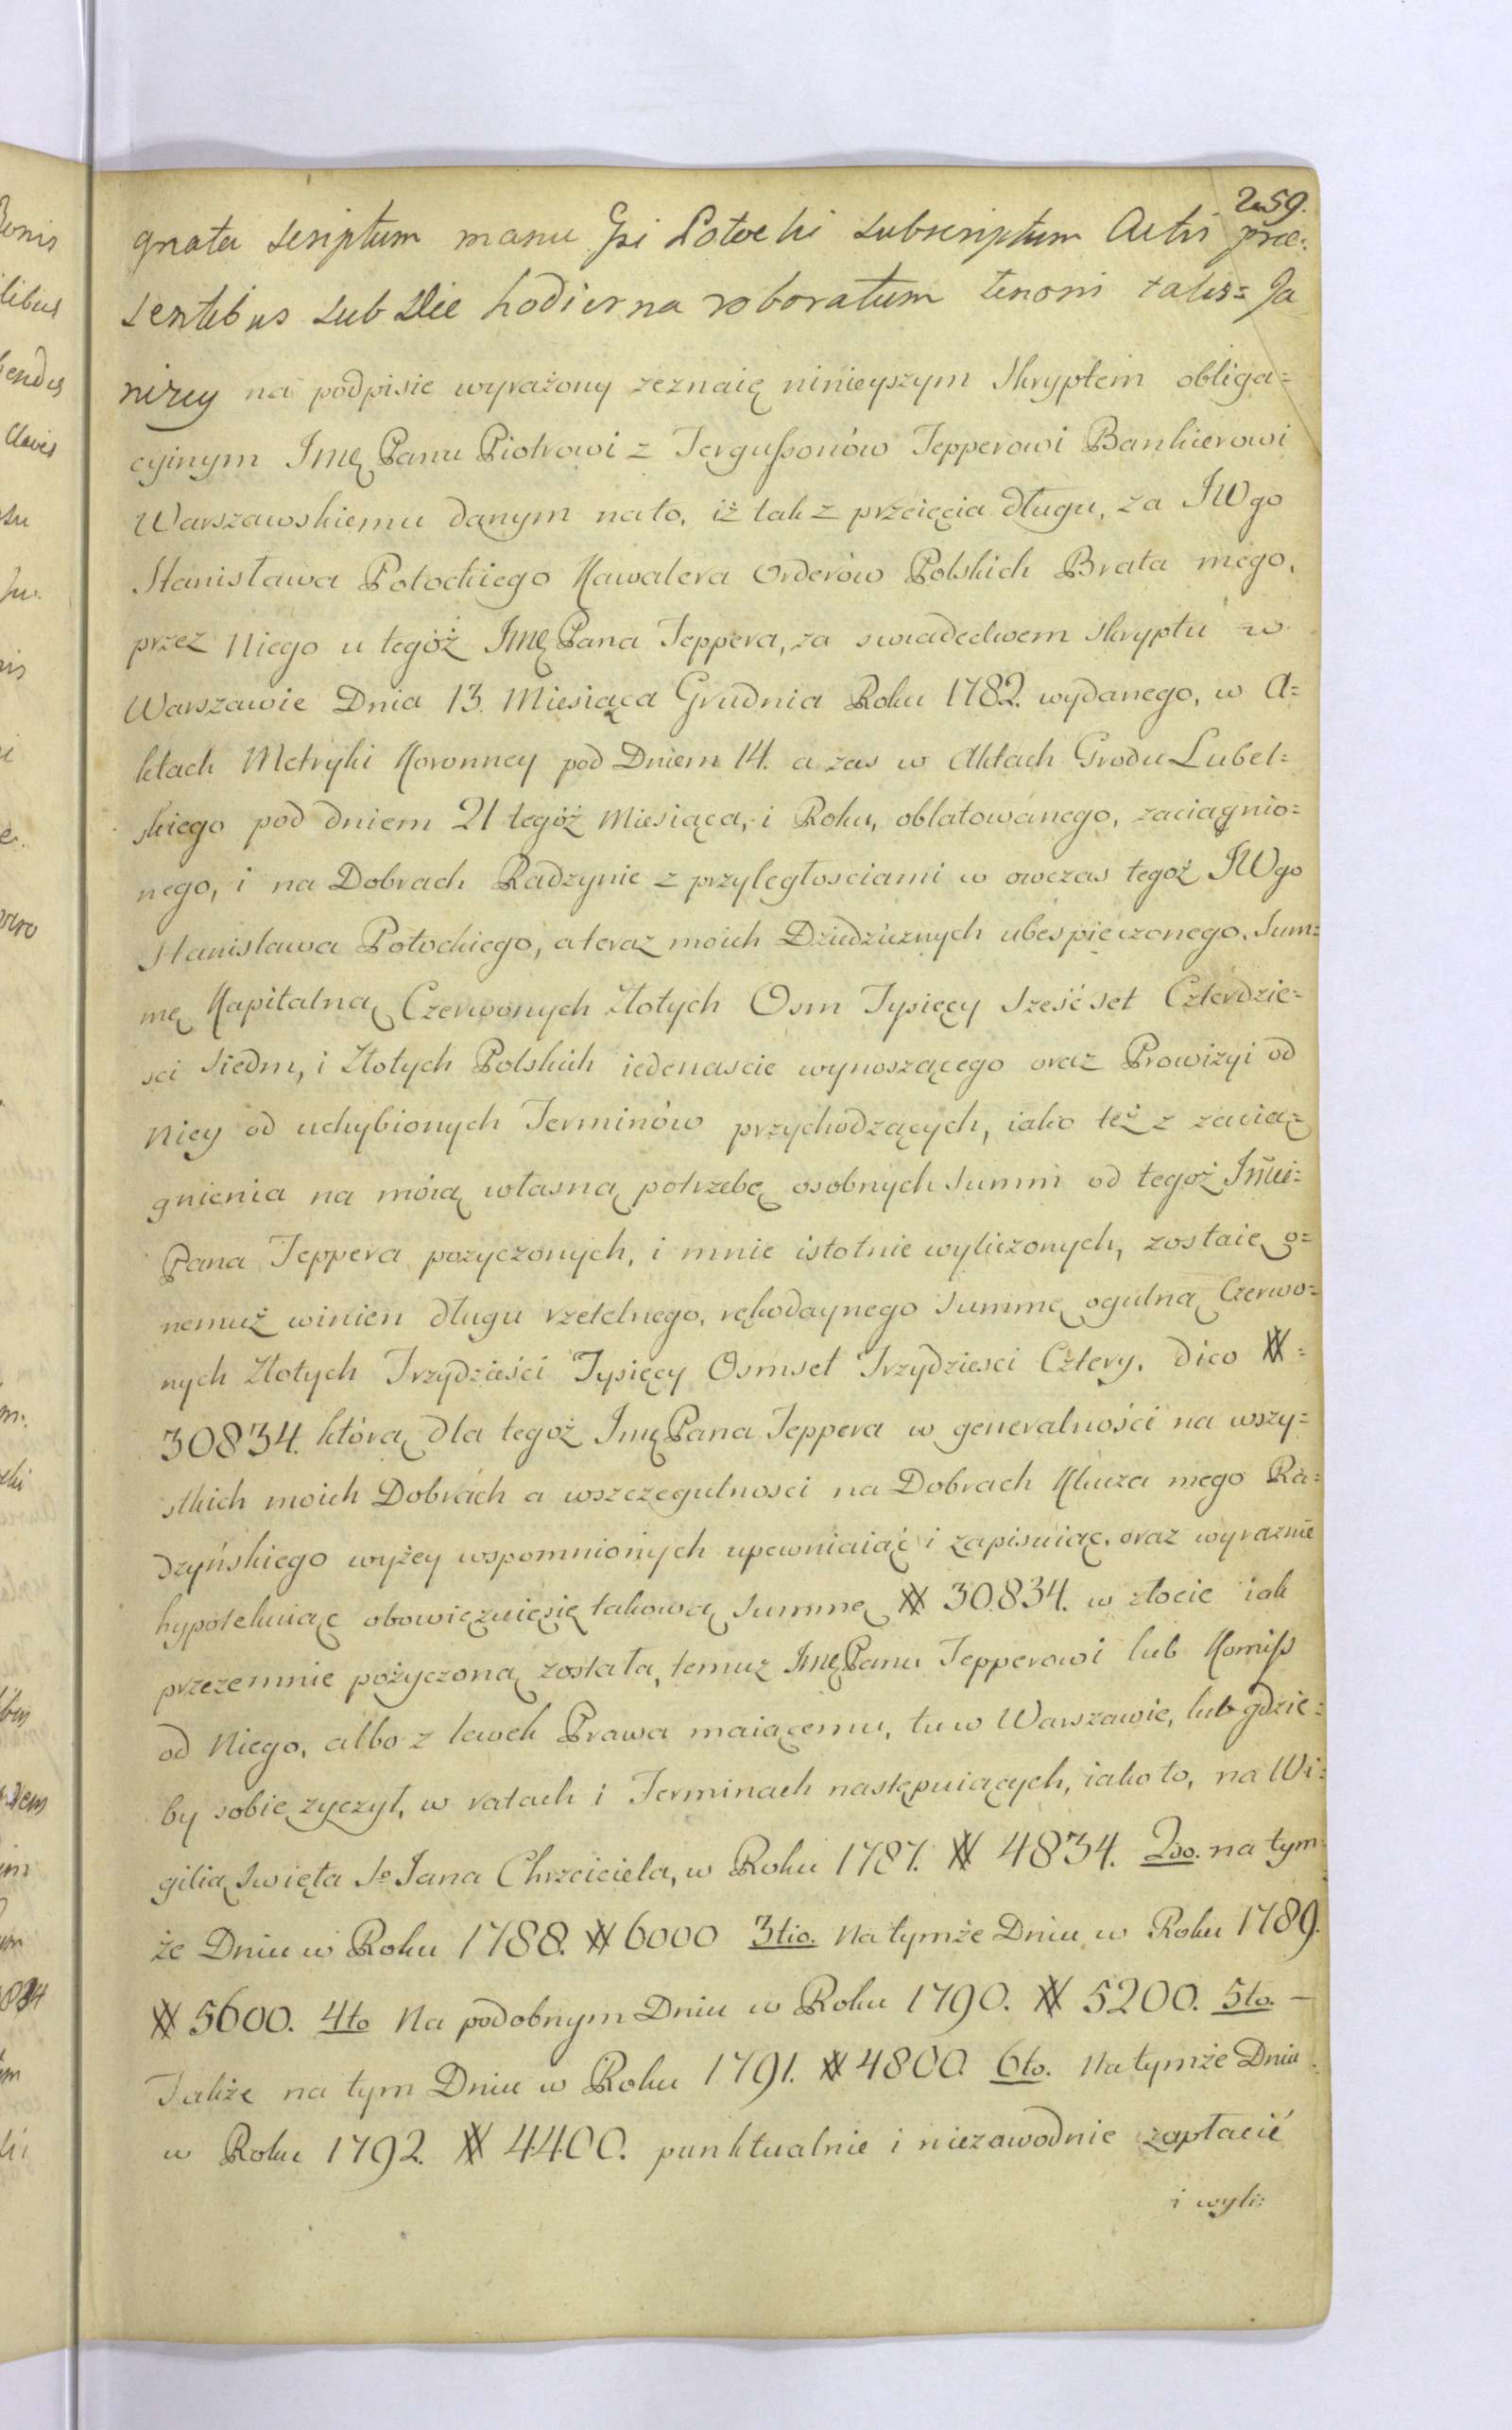 259.
gnata scriptum manu Gsi Potocki subscriptum Actis præ:
sentibus sub Die hodierna roboratum tenoris talis= Ja
niżey na podpisie wyrażony zeznaię ninieyszym Skryptem obliga=
cyinym Jmę Panu Piotrowi z Fergussonów Tepperowi Bankierowi
Warszawskiemu danym na to, iż tak z przeięcia długu, za JWgo
Stanisława Potockiego Kawalera Orderów Polskich Brata mego,
przez Niego u tegóż Jmę Pana Teppera, za swiadectwem Skryptu w
Warszawie Dnia 13. Miesiąca Grudnia Roku 1782. wydanego, w A=
ktach Metryki Koronney pod Dniem 14. a zas w Aktach Grodu Lubel=
skiego pod dniem 21 tegóż Miesiąca, i Roku, oblatowanego, zaciągnio=
nego, i na Dobrach Radzynie z przyległosciami w owczas tegoż JWgo
Stanisława Potockiego, a teraz moich Dziedzicznych ubespieczonego. Sum=
mę Kapitalną Czerwonych Złotych Osm Tysięcy Sześćset Czterdzie=
sci siedm, i Złotych Polskich iedenascie wynoszącego oraz Prowizyi od
Niey od uchybionych Terminów przychodzących, iako też z zacią=
gnienia na móią własną potrzebę osobnych Summ od tegoż Jmci=
Pana Teppera pozyczonych, i mnie istotnie wyliczonych, zostaię o=
nemuż winien długu rzetelnego, rękodaynego Summę ogulną Czerwo=
nych Złotych Trzydzieści Tysięcy Osmset Trzydziesci Cztery. dico #=
30834. którą dla tegoż Jmę Pana Teppera w generalności na wszy=
stkich moich Dobrach a wszczegulnosci na Dobrach Klucza mego Ra=
dzyńskiego wyżey wspomnionych upewniaiąc i zapisuiąc, oraz wyraznie
hypotekuiąc obowięzuię się takową Summę # 30834. w złocie iak
przezemnie pożyczoną została, temuz Jmę Panu Tepperowi lub Komiss
od Niego, albo z lawek Prawa maiącemu, tu w Warszawie, lub gdzie=
by sobie zyczył, w ratach i Terminach następuiących, iako to, na Wi=
gilią Swięta Sgo Jana Chrzciciela, w Roku 1787. # 4834. 2do. na tym=
że Dniu w Roku 1788. # 6000 3tio. Na tymże Dniu w Roku 1789.
# 5600. 4to Na podobnym Dniu w Roku 1790. # 5200. 5to. –
Także na tym Dniu w Roku 1791. # 4800. 6to. Na tymże Dniu
w Roku 1792. # 4400. punktualnie i niezawodnie zapłacić
i wyli: